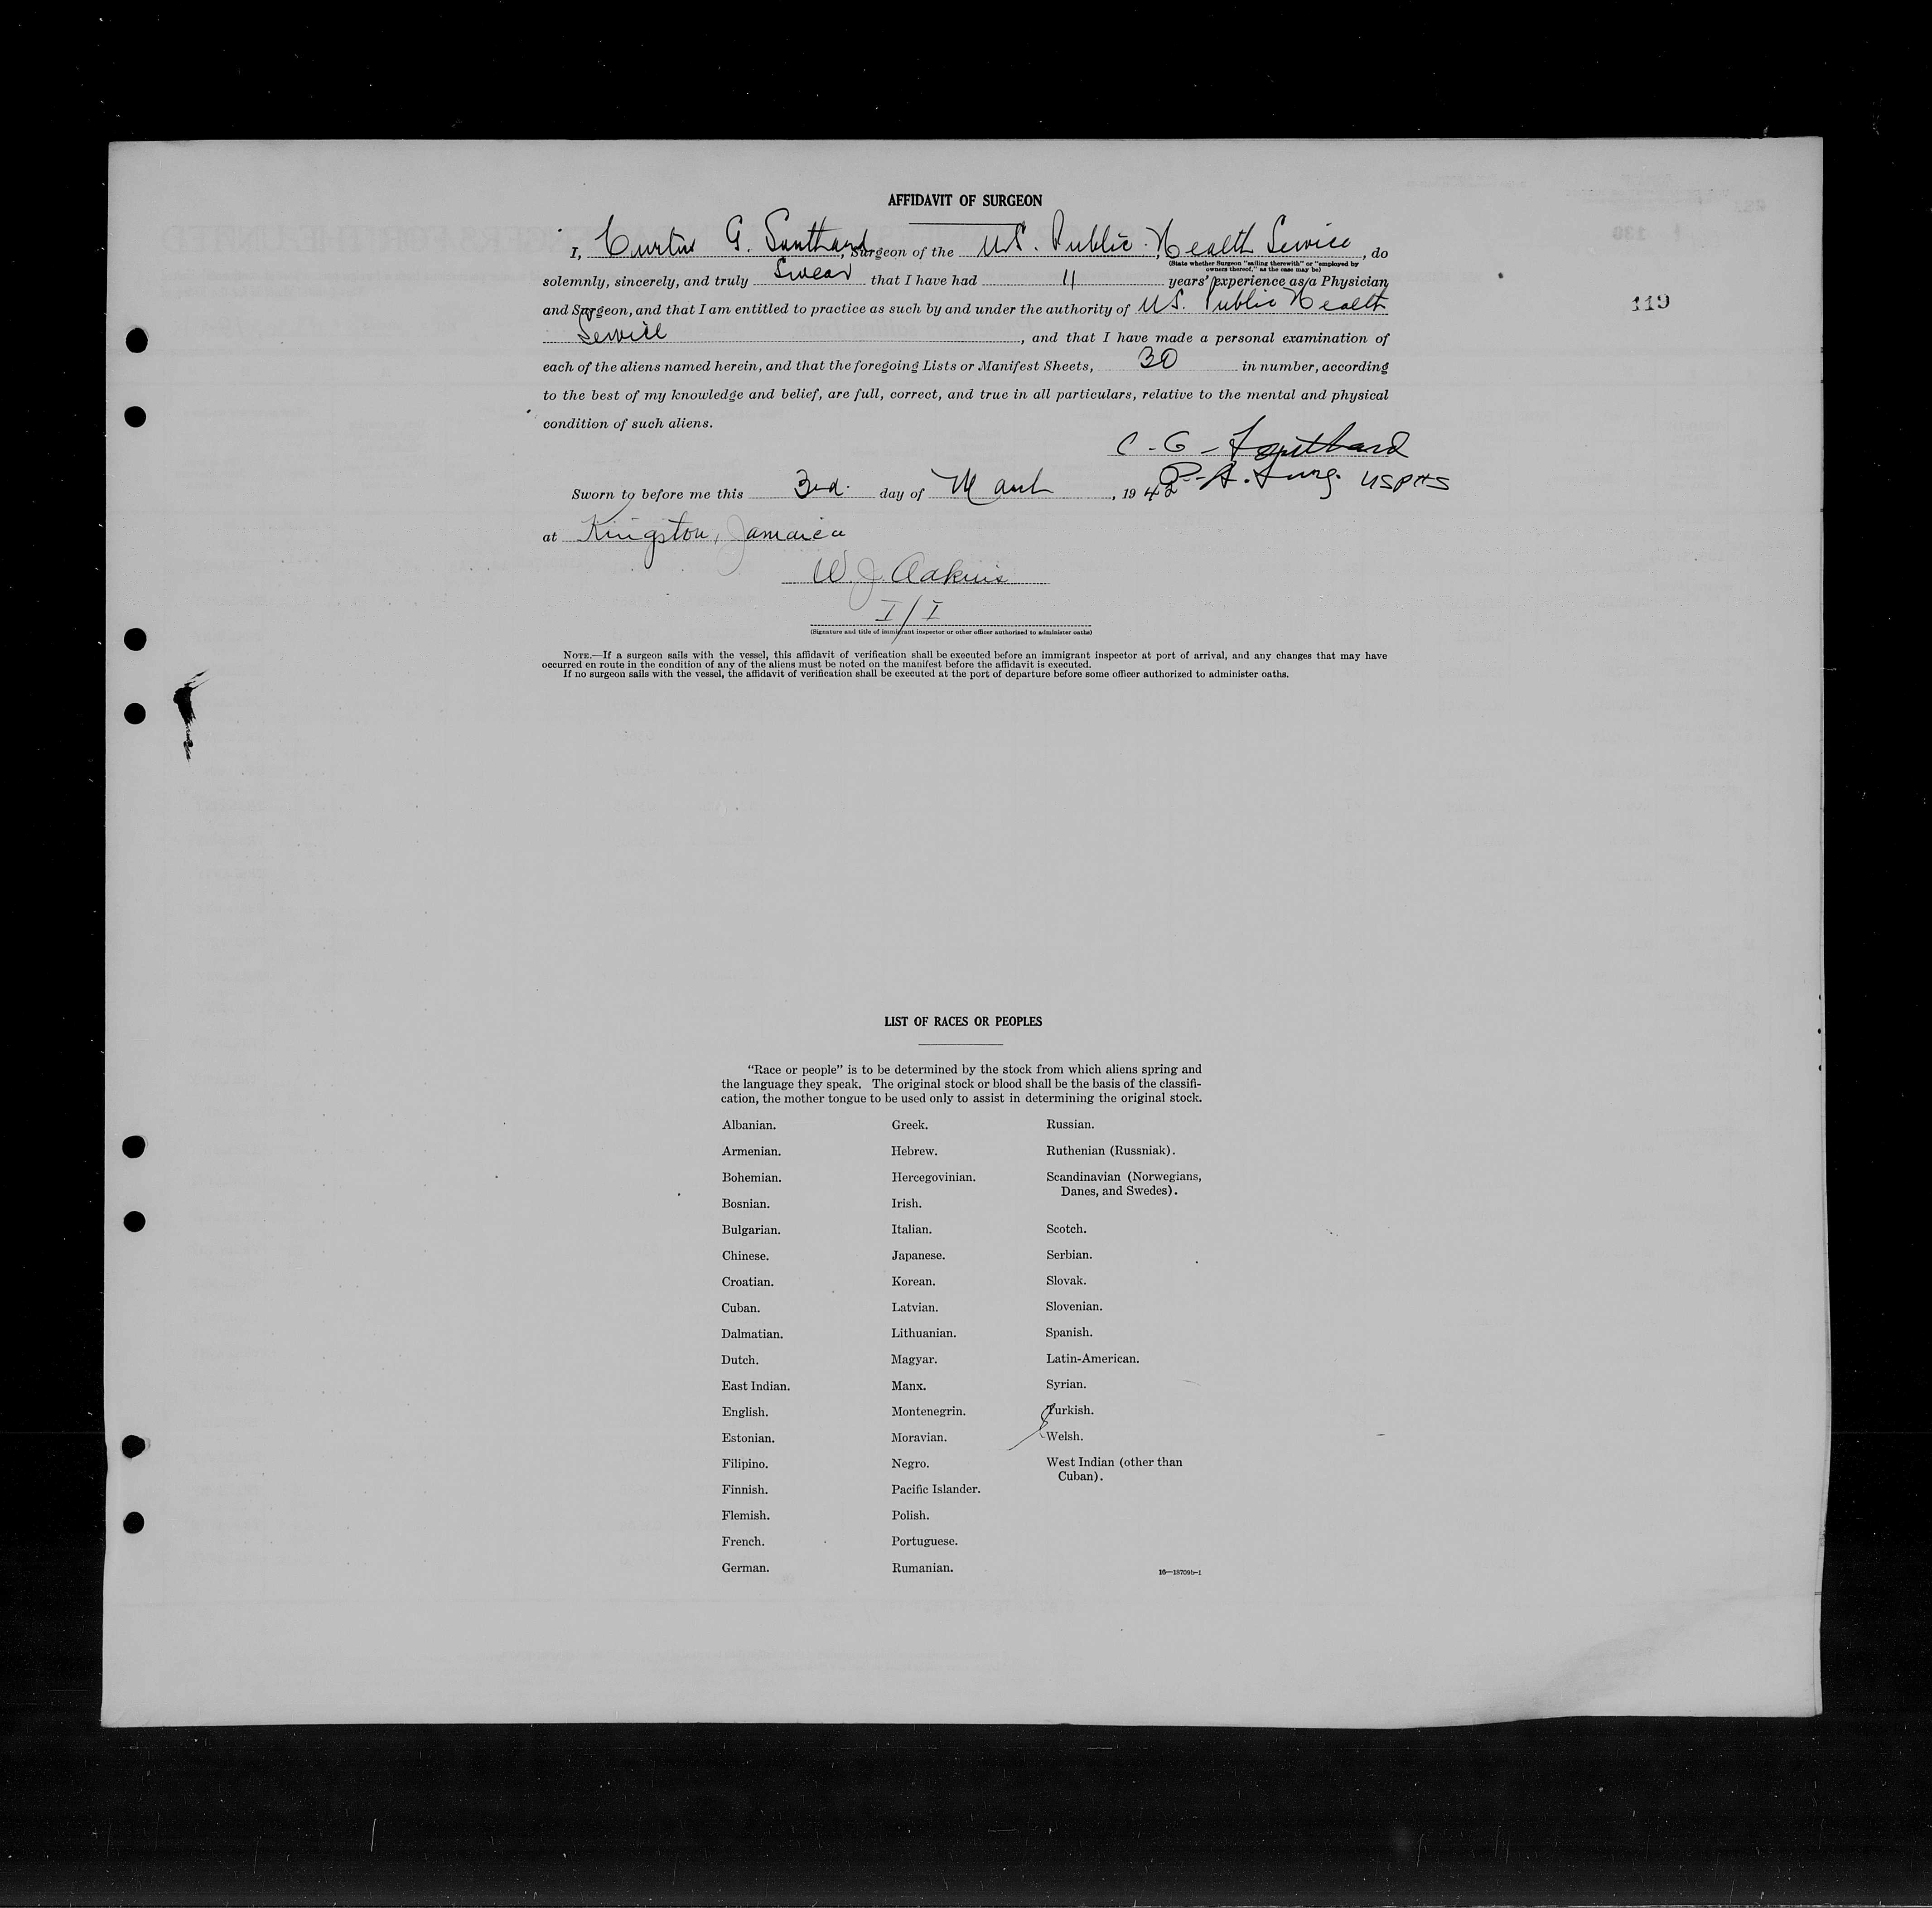 AFFIDAVIT OF SURGEON
I, Curtis G. Southard, Surgeon of the U.S. Public Health Service, do
(State whether Surgeon "sailing therewith" or "employed by
owners thereof," as the case may be)
solemnly, sincerely, and truly Swear that I have had 11 years' experience as a Physician
and Surgeon, and that I am entitled to practice as such by and under the authority of U.S. Public Health
Service, and that I have made a personal examination of
each of the aliens named herein, and that the foregoing Lists or Manifest Sheets, 30 in number, according
to the best of my knowledge and belief, are full, correct, and true in all particulars, relative to the mental and physical
condition of such aliens.
119
C. G. Southard
P. A. Surg. USPHS
Sworn to before me this 3rd. day of March, 1942
at Kingston, Jamaica
W. J. Adkins
I/I
(Signature and title of immigrant inspector or other officer authorized to administer oaths)
NOTE.—If a surgeon sails with the vessel, this affidavit of verification shall be executed before an immigrant inspector at port of arrival, and any changes that may have
occurred en route in the condition of any of the aliens must be noted on the manifest before the affidavit is executed.
If no surgeon sails with the vessel, the affidavit of verification shall be executed at the port of departure before some officer authorized to administer oaths.
LIST OF RACES OR PEOPLES
"Race or people" is to be determined by the stock from which aliens spring and
the language they speak. The original stock or blood shall be the basis of the classifi-
cation, the mother tongue to be used only to assist in determining the original stock.
Albanian.
Armenian.
Bohemian.
Bosnian.
Bulgarian.
Chinese.
Croatian.
Cuban.
Dalmatian.
Dutch.
East Indian.
English.
Estonian.
Filipino.
Finnish.
Flemish.
French.
German.
Greek.
Hebrew.
Hercegovinian.
Irish.
Italian.
Japanese.
Korean.
Latvian.
Lithuanian.
Magyar.
Manx.
Montenegrin.
Moravian.
Negro.
Pacific Islander.
Polish.
Portuguese.
Rumanian.
Russian.
Ruthenian (Russniak).
Scandinavian (Norwegians,
Danes, and Swedes).
Scotch.
Serbian.
Slovak.
Slovenian.
Spanish.
Latin-American.
Syrian.
Turkish.
Welsh.
West Indian (other than
Cuban).
16—18709b-1